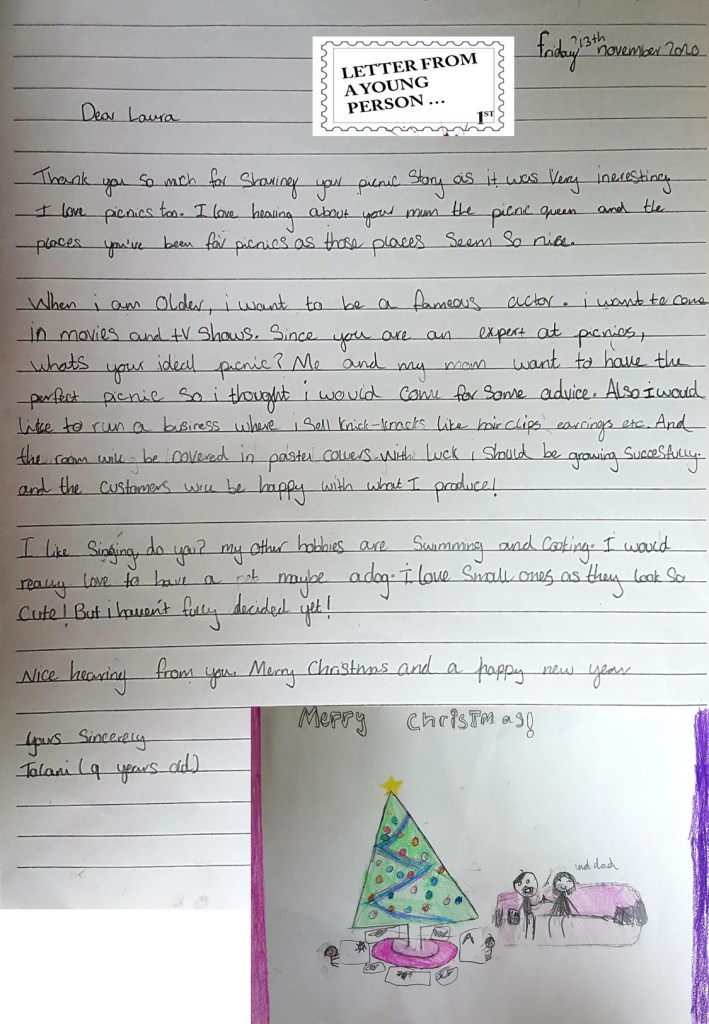 Friday 13th november 2020
LETTER FROM
A YOUNG
PERSON ...
1ST
Dear Laura
Thank you so mch for Sharing your picnic Story as it was Very ineresting
I love picnics too. I love hearing about your mum the picnic queen and the
places you've been for picnics as those places Seem So nice.
When i am Older, i want to be a fameous actor. i want to come
in movies and tv Shows. Since you are an expert at picnics,
whats your ideal picnic? Me and my mom want to have the
perfect picnic So i thought i would come for Some advice. Also i would
like to run a business where i Sell knick-knacks like hair clips earrings etc. And
the room will be covered in pastel colours. With luck i Should be growing Succesfully.
and the customers will be happy with what I produce!
I like Singing, do you? my other hobbies are Swimming and Cooking. I would
really love to have a maybe a dog. i love Small ones as they look So
Cute! But i haven't fully decided yet!
Nice hearing from you. Merry Christmas and a happy new year
Yours Sincerely
(9 years old)
Merry ChrisTmas!
dad